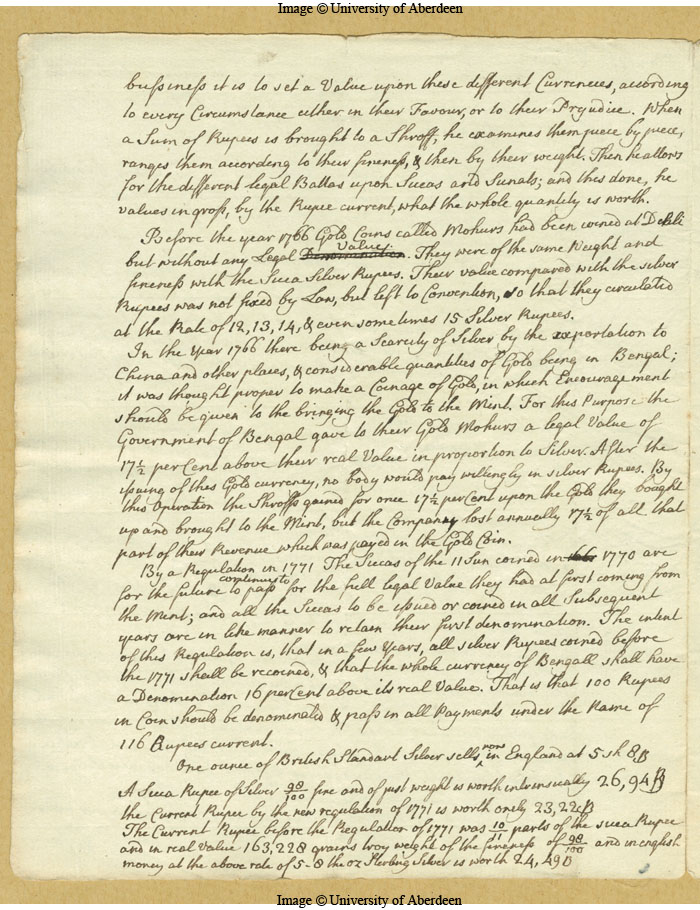 Image © University of Aberdeen
bussiness it is to set a Value upon these different Currencies, according
to every Circumstance either in their Favour, or to their Prejudice. When
a Sum of Rupees is brought to a Shroff, he examines them piece by piece,
ranges them according to their fineness, & then by their weight. Then he allows
for the different legal Battas upon Siccas and Sunats; and this done, he
values in gross, by the Rupee current, what the whole quantity is worth.
Before the year 1766 Gold Coins called Mohurs had been coined at Dehli
but without any Legal Denomination Value. They were of the same Weight and
fineness with the Sicca Silver Rupees. Their value compared with the silver
Rupees was not fixed by Law, but left to Convention, so that they circulated
at the Rate of 12, 13, 14, & even sometimes 15 Silver Rupees.
In the Year 1766 there being a Scarcity of Silver by the exportation to
China and other places, & considerable quantities of Gold being in Bengal;
it was thought proper to make a Coinage of Gold, in which Encouragement
should be given to the bringing the Gold to the Mint. For this Purpose the
Government of Bengal gave to their Gold Mohurs a legal Value of
17½ per Cent above their real Value in proportion to Silver. After the
issuing of this Gold currency, no body would pay willingly in silver Rupees. By
this Operation the Shroffs gained for once 17½ per Cent upon the Gold they bought
up and brought to the Mint, but the Company lost annually 17½ of all that
part of their Revenue which was payed in the Gold Coin.
By a Regulation in 1771 The Siccas of the 11 Sun coined in 1770 are
for the future continue to pass for the full legal Value they had at first coming from
the Mint; and all the Siccas to be issued or coined in all Subsequent
years are in like manner to retain their first denomination. The intent
of this Regulation is, that in a few Years, all silver Rupees coined before
the 1771 shall be recoined, & that the whole currency of Bengall shall have
a Denomination 16 per Cent above its real Value. That is that 100 Rupees
in Coin should be denominated & pass in all Payments under the Name of
116 Rupees current.
One ounce of British Standart Silver sells now in England at 5 sh 8 D
A Sicca Rupee of Silver 98/100 fine and of just weight is worth intrinsically 26,94 D
the Current Rupee by the new regulation of 1771 is worth only 23,22 D
The Current Rupee before the Regulation of 1771 was 10/11 parts of the sicca Rupee
and in real Value 163,228 grains troy weight of the fineness of 98/100 and in english
money at the above rate of 5-8 the oz Sterling Silver is worth 24,49 D
Image © University of Aberdeen